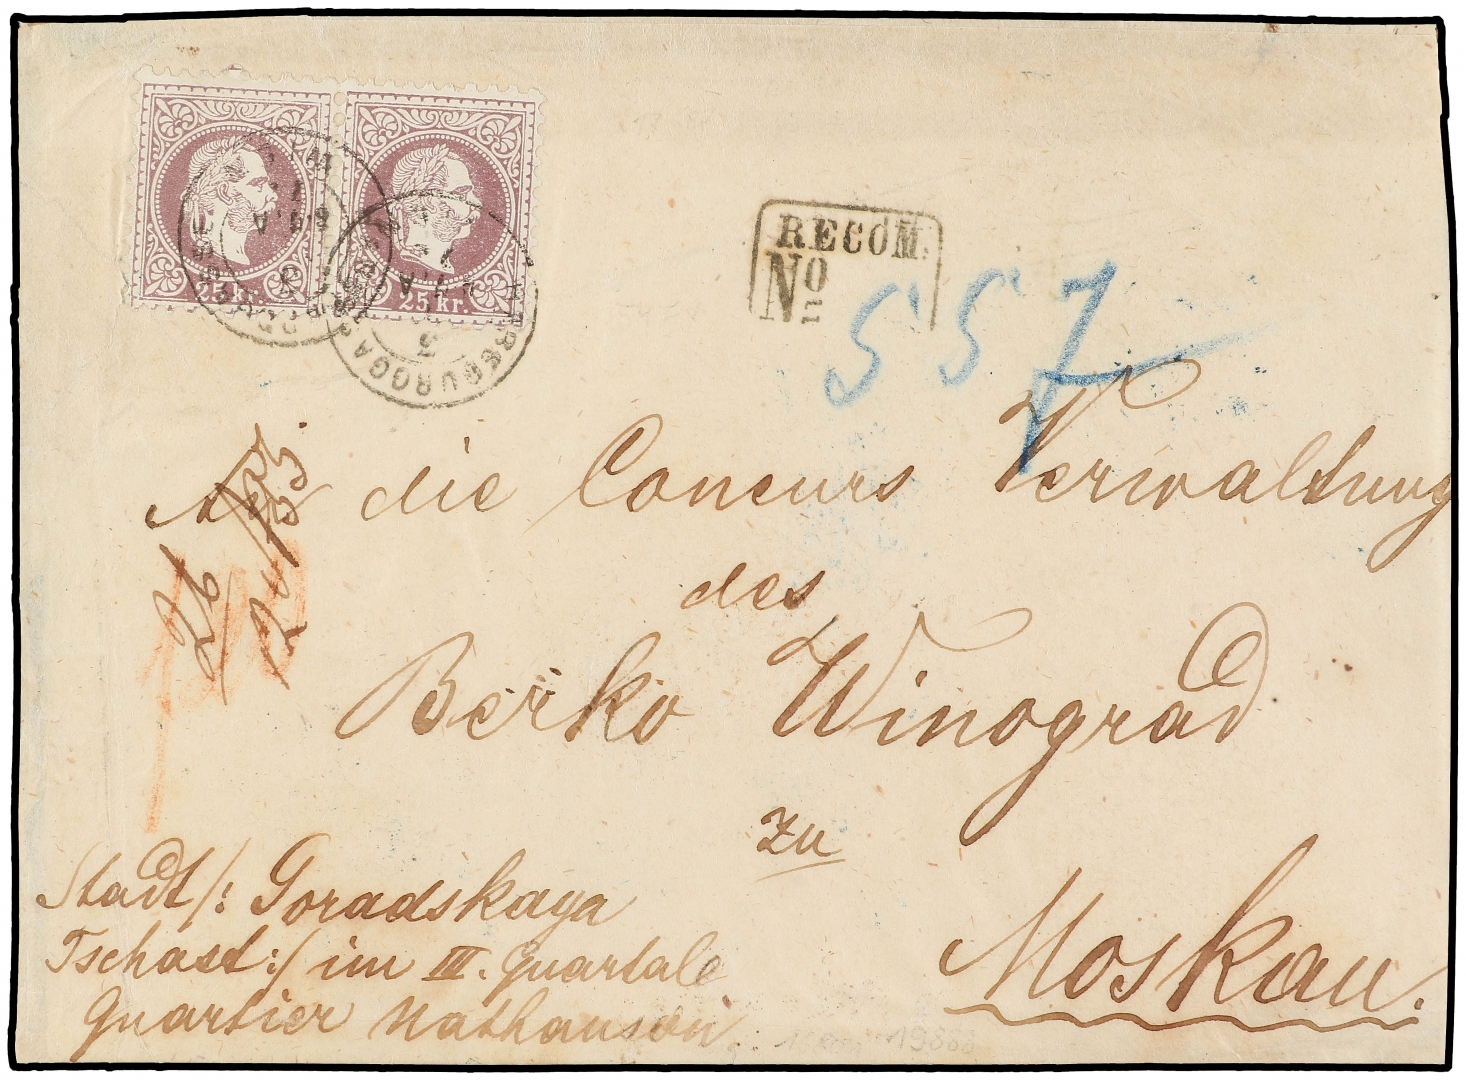 25 kr.
25 kr.
RECOM.
No
557
An die Concurs Verwaltung
des
Berko Winograd
zu
Moskau.
Stadt /: Goradskaga
Tschast :/ im III. Quartale
Quartier Nathanson
26